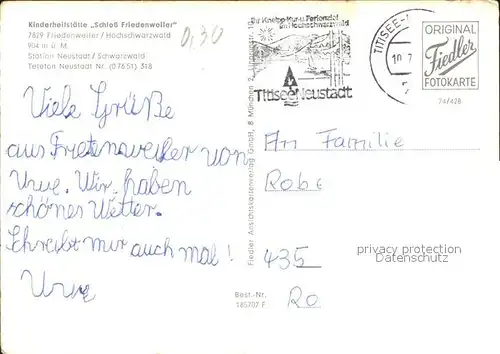 Kinderheilstätte „Schloß Friedenweiler"
7829 Friedenweiler / Hochschwarzwald
904 m ü. M.
Station Neustadt / Schwarzwald
Telefon Neustadt Nr. (07651) 318
0,30
Viele Grüße
aus Frietensweiler von
Uwe. Wir haben
schönes Wetter.
Schreibt mir auch mal!
Uwe
Ihr Kneipp-Kur- u. Ferienziel
im Hochschwarzwald
Titisee Neustadt
TITISEE-
10.7
ORIGINAL
Fiedler
FOTOKARTE
24/428
Fiedler Ansichtskartenverlag GmbH, 8 München 2,
Best.-Nr.
185707 F
An Familie
Robe
435
Ro
privacy protection
Datenschutz